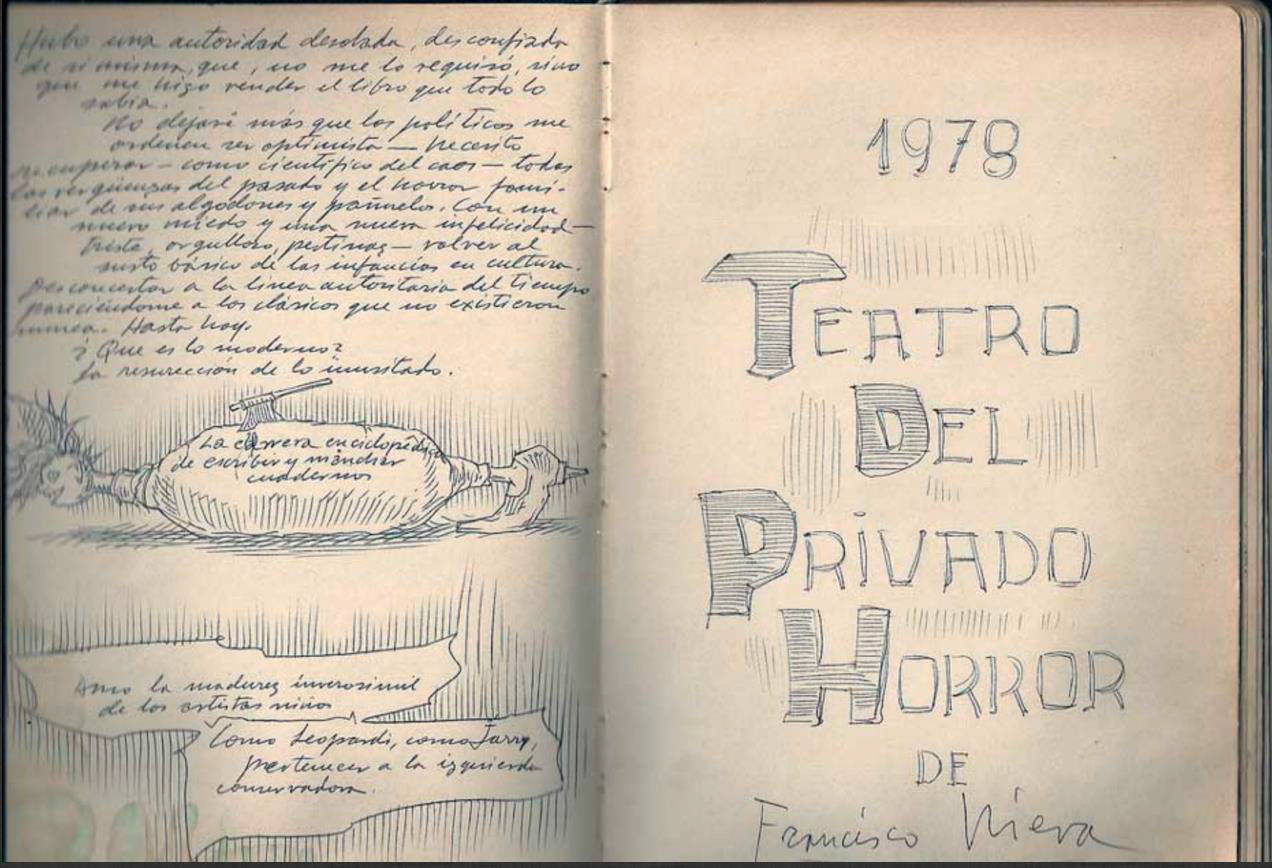 Hubo una autoridad desolada, desconfiada
de si misma, que, no me lo requisó, sino
que me hizo vender el libro que todo lo
sabia.
No dejaré más que los políticos me
ordenen ser optimista — Necesito
recuperar — como científico del caos — todas
las vergüenzas del pasado y el horror fami-
liar de sus algodones y pañuelos. Con un
nuevo miedo y una nueva infelicidad —
triste, orgulloso, pertinaz — volver al
susto básico de las infancias en cultura.
Desconcertar a la linea autoritaria del tiempo
pareciéndome a los clásicos que no existieron
nunca. Hasta hoy.
¿Que es lo moderno?
La resurección de lo inusitado.
La carrera enciclopédica
de escribir y manchar
cuadernos
Amo la madurez inverosimil
de los artistas niños
Como Leopardi, como Jarry,
pertenecer a la izquierda
conservadora.
1978
TEATRO
DEL
PRIVADO
HORROR
DE
Francisco Nieva